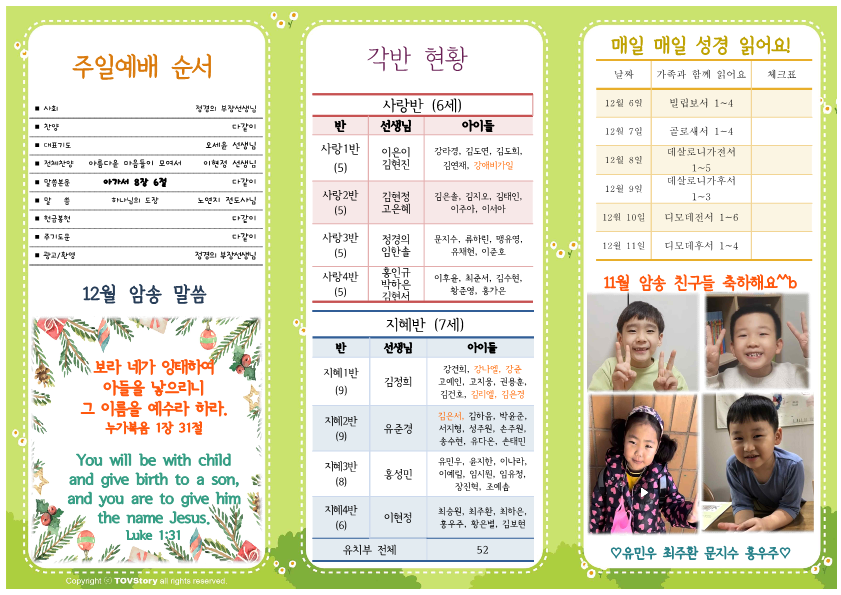 주일예배 순서
■ 사회 정경의 부장선생님
■ 찬양 다같이
■ 대표기도 오세윤 선생님
■ 전체찬양 아름다운 마음들이 모여서 이현정 선생님
■ 말씀본문 아가서 8장 6절 다같이
■ 말 씀 하나님의 도장 노연지 전도사님
■ 헌금봉헌 다같이
■ 주기도문 다같이
■ 광고/환영 정경의 부장선생님
12월 암송 말씀
보라 네가 잉태하여
아들을 낳으리니
그 이름을 예수라 하라.
누가복음 1장 31절
You will be with child
and give birth to a son,
and you are to give him
the name Jesus.
Luke 1:31
Copyright ⓒ TOVStory all rights reserved.
각반 현황
사랑반 (6세)
반 선생님 아이들
사랑1반 (5) 이은이 김현진 강라경, 김도연, 김도희,
김연재, 강예비가일
사랑2반 (5) 김현정 고은혜 김은솔, 김지오, 김태인,
이주아, 이서아
사랑3반 (5) 정경의 임한솔 문지수, 류하린, 맹유영,
유채현, 이준호
사랑4반 (5) 홍인규 박하은 김현서 이후윤, 최준서, 김수현,
황준영, 홍가은
지혜반 (7세)
반 선생님 아이들
지혜1반 (9) 김정희 강건희, 강나엘, 강준
고예인, 고지웅, 권용훈,
김건호, 김리엘, 김은경
지혜2반 (9) 유준경 김은서, 김하음, 박윤준,
서지형, 성주원, 손주원,
송수현, 유다온, 손태민
지혜3반 (8) 홍성민 유민우, 윤지한, 이나라,
이예림, 임시원, 임유정,
장진혁, 조예솔
지혜4반 (6) 이현정 최승원, 최주환, 최하온,
홍우주, 황은별, 김보현
유치부 전체 52
매일 매일 성경 읽어요!
날짜 가족과 함께 읽어요 체크표
12월 6일 빌립보서 1~4
12월 7일 골로새서 1~4
12월 8일 데살로니가전서 1~5
12월 9일 데살로니가후서 1~3
12월 10일 디모데전서 1~6
12월 11일 디모데후서 1~4
11월 암송 친구들 축하해요^^b
♡유민우 최주환 문지수 홍우주♡